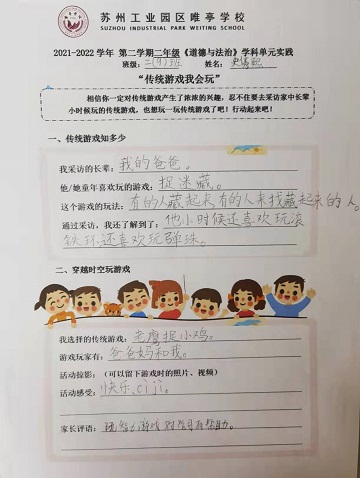 苏州工业园区唯亭学校
SUZHOU INDUSTRIAL PARK WEITING SCHOOL
2021-2022 学年 第二学期二年级《道德与法治》学科单元实践
班级：二(9)班 姓名：
“传统游戏我会玩”
相信你一定对传统游戏产生了浓浓的兴趣，忍不住要去采访家中长辈
小时候玩的传统游戏，也想玩一玩传统游戏了吧！行动起来吧！
一、传统游戏知多少
我采访的长辈：我的爸爸。
他/她童年喜欢玩的游戏：捉迷藏。
这个游戏的玩法：有的人藏起来有的人来找藏起来的人
通过采访，我还了解到了：他小时候还喜欢玩滚
铁环还喜欢玩弹珠。
二、穿越时空玩游戏
我选择的传统游戏：老鹰捉小鸡。
游戏玩家有：爸爸妈和我。
活动掠影：（可以留下游戏时的照片、视频）
活动感受：快乐、cìjī。
家长评语：玩智力游戏对学习有帮助。